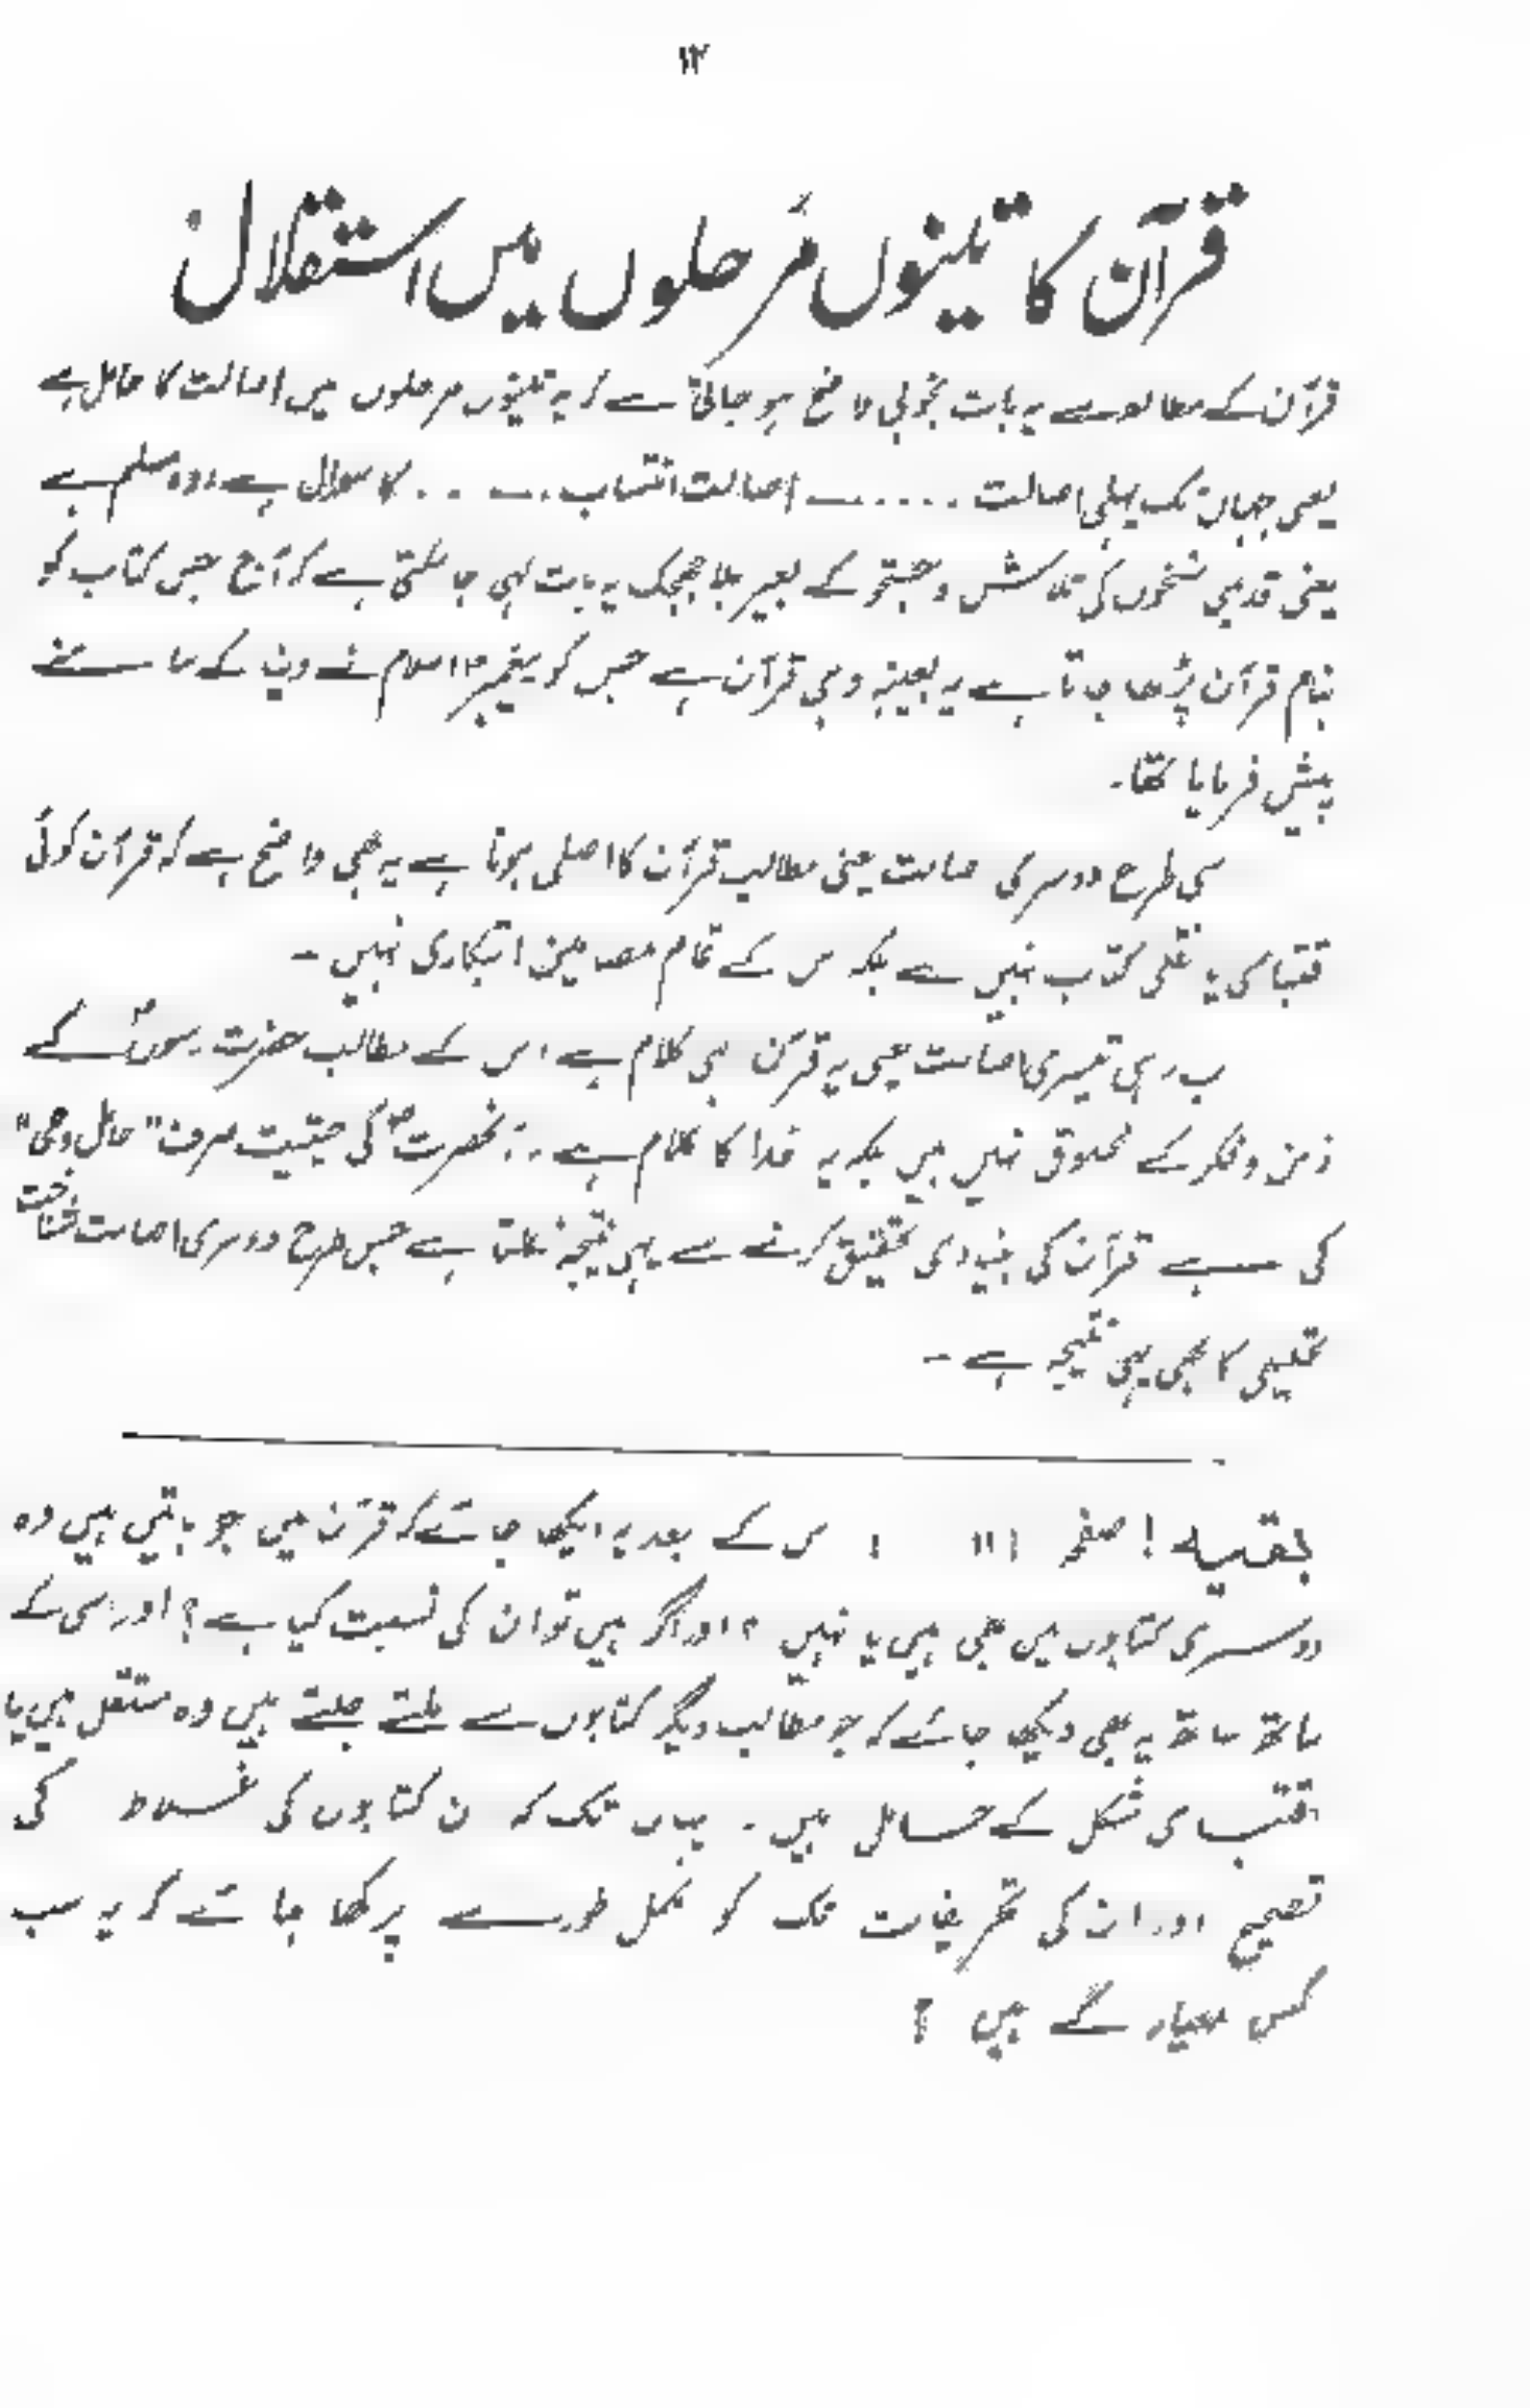 ۱۲
قرآن کا تینوں مرحلوں میں استقلال
قرآن کے مطالعہ سے یہ بات بخوبی واضح ہو جاتی ہے کہ یہ تینوں مرحلوں میں اصالت کا حامل ہے
یعنی جہاں تک پہلی اصالت ..... اصالت انتساب .... کا سوال ہے وہ مسلم ہے
یعنی قدیمی نسخوں کی تلاش و جستجو کے بغیر بلا جھجک یہ بات کہی جا سکتی ہے کہ آج جس کتاب کو
بنام قرآن پڑھا جاتا ہے یہ بعینہ وہی قرآن ہے جس کو پیغمبر اسلام نے دنیا کے سامنے
پیش فرمایا تھا۔
اسی طرح دوسری اصالت یعنی مطالب قرآن کا اصلی ہونا ہے یہ بھی واضح ہے کہ قرآن کوئی
اقتباسی یا نقلی کتاب نہیں ہے بلکہ اس کے تمام مضامین ابتکاری نہیں ۔
اب رہی تیسری اصالت یعنی یہ قرآن الٰہی کلام ہے اس کے مطالب حضرت رسولؐ کے
ذہن و فکر کے مخلوق نہیں ہیں بلکہ یہ خدا کا کلام ہے ۔ آنحضرتؐ کی حیثیت صرف "حامل وحی"
کی سی ہے قرآن کی بنیادی تحقیق کرنے سے یہی نتیجہ نکلتا ہے جس طرح دوسری اصالت شناخت
تحلیلی کا بھی یہی نتیجہ ہے ۔
بقیہ ! صفحہ ۱۱ ! اس کے بعد یہ دیکھا جائے کہ قرآن میں جو باتیں ہیں وہ
دوسری کتابوں میں بھی ہیں یا نہیں ؟ اور اگر ہیں تو ان کی نسبت کیا ہے ؟ اور اسی کے
ساتھ ساتھ یہ بھی دیکھا جائے کہ جو مطالب دیگر کتابوں سے ملتے جلتے ہیں وہ مستقل ہیں یا
اقتباسی شکل کے حامل ہیں ۔ یہاں تک کہ ان کتابوں کی اغلاط کی
تصحیح اور ان کی تحریفات تک کو مکمل طور سے پرکھا جائے کہ یہ سب
کس معیار کے ہیں ؟